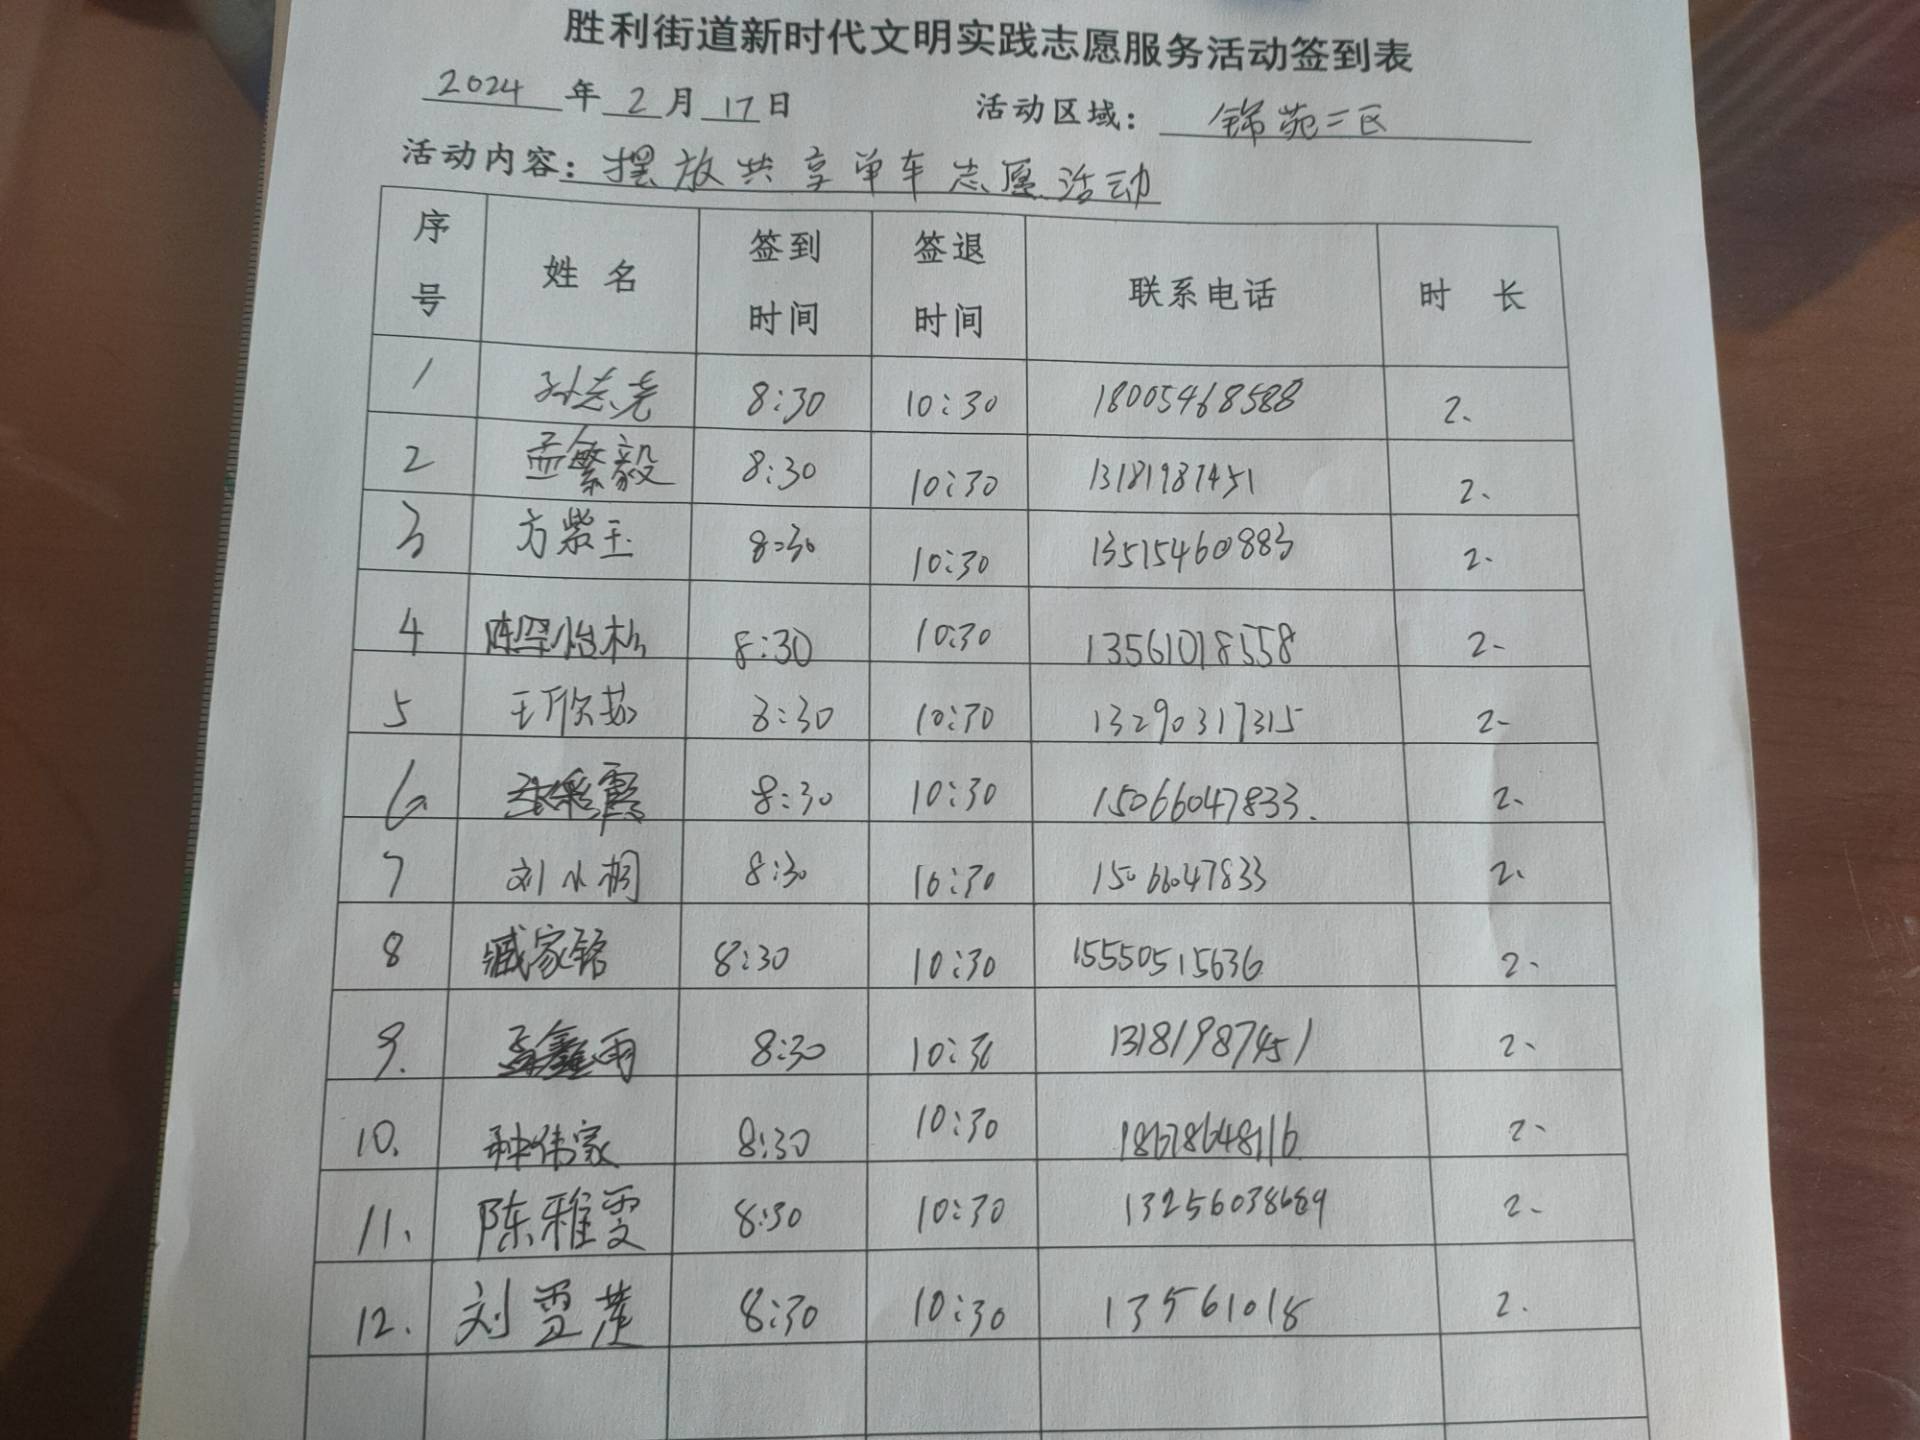 胜利街道新时代文明实践志愿服务活动签到表
2024 年 2 月 17 日 活动区域: 锦苑二区
活动内容: 摆放共享单车志愿活动
序号 姓名 签到时间 签退时间 联系电话 时长
1 孙志尧 8:30 10:30 18005468588 2.
2 孟繁毅 8:30 10:30 13181987451 2.
3 方紫玉 8:30 10:30 13515460883 2.
4 8:30 10:30 13561018558 2.
5 王欣茹 8:30 10:30 13290317315 2.
6 8:30 10:30 15066047833. 2.
7 刘小桐 8:30 10:30 15066047833 2.
8 臧家铭 8:30 10:30 15550515636 2.
9. 孟鑫雨 8:30 10:30 13181987451 2.
10. 种伟家 8:30 10:30 18678648116 2.
11. 陈雅雯 8:30 10:30 13256038689 2.
12. 刘 8:30 10:30 13561018 2.